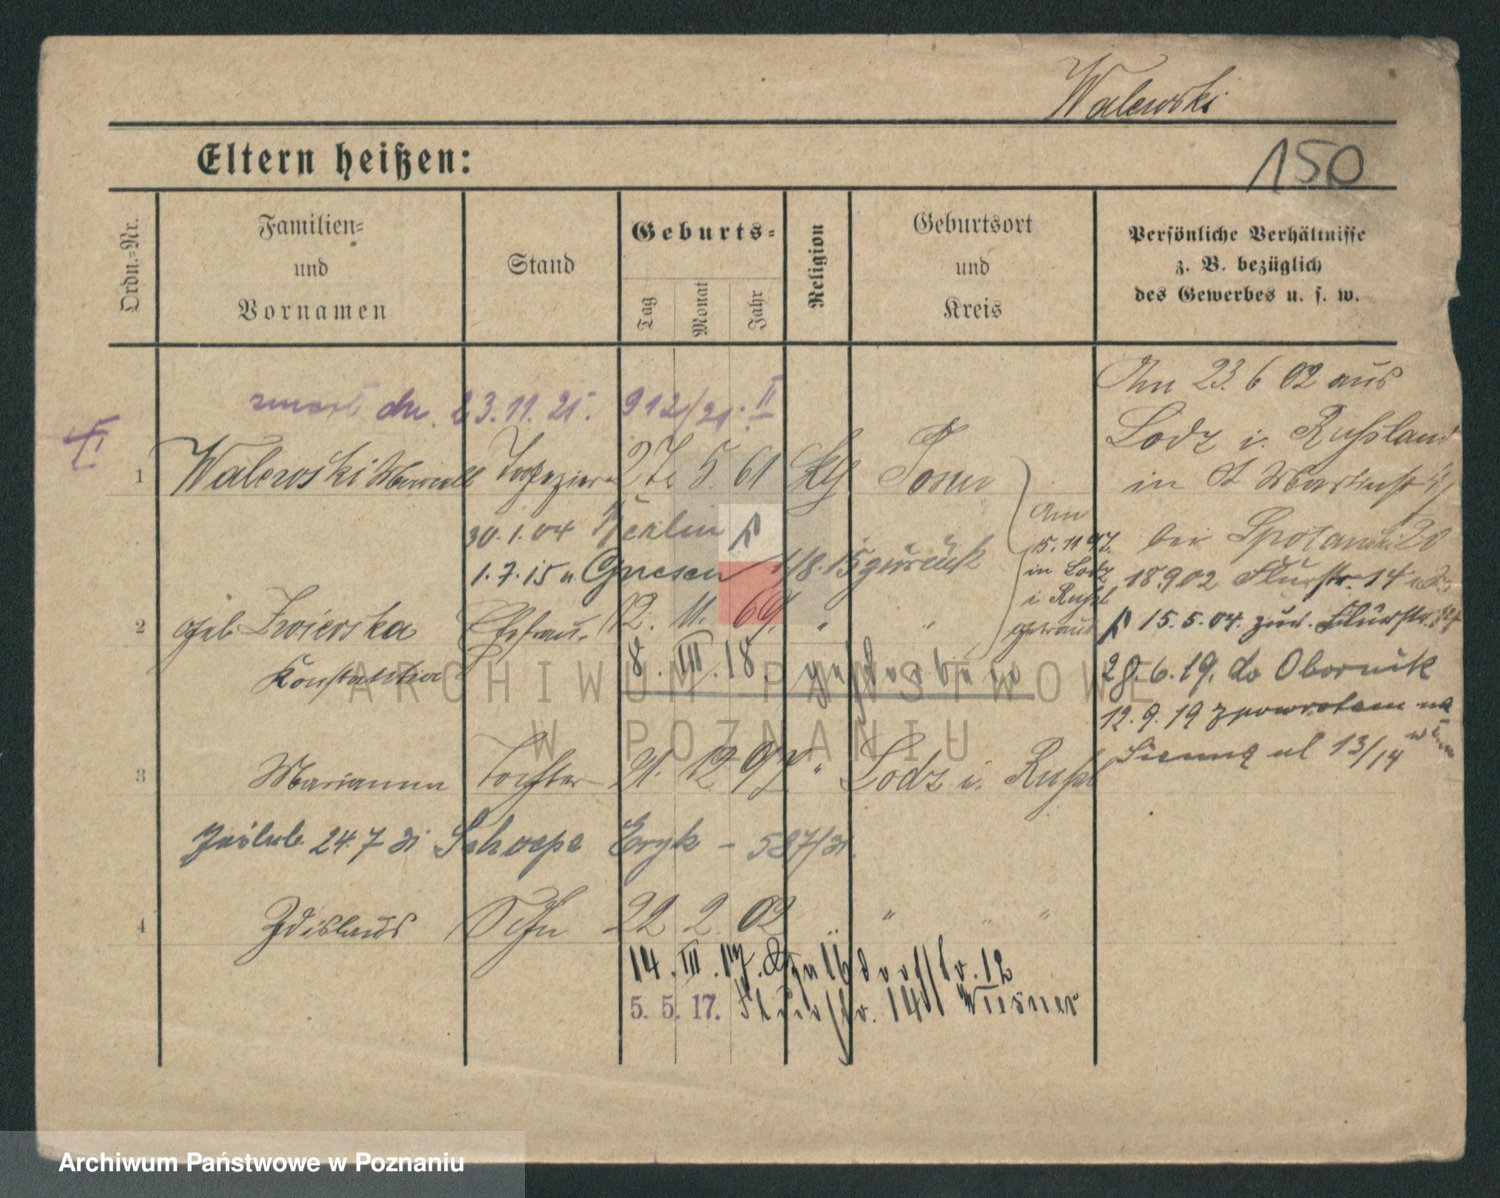 Walewski
Eltern heißen:
150
Ordn.-Nr.
Familien-
und
Vornamen
Stand
Geburts-
Tag
Monat
Jahr
Religion
Geburtsort
und
Kreis
Persönliche Verhältnisse
z. B. bezüglich
des Gewerbes u. s. w.
zmarł dn. 23.11.21. 912/21. II
1 Walewski Marcell Tapezier 27. 5. 61 Posen
30.1.04 Berlin
1.7.15 n Gnesen 1/8.15 zurück
2 geb. Zwierska Ehefrau 12. 11. 69. " "
Konstantia
8. III. 18. gestorben
Am
15.11.97
in Lodz
i. Rußl
getraut
3 Marianna Tochter 21. 12 97 " Lodz i. Rußl
zaślub. 24.7 31 Schoepe Eryk – 587/31.
4 Zdislaus Sohn 22 2. 02 " " "
14. III. 17. 12
5. 5. 17. Flurstr. 14 Wiesner
Am 23.6 02 aus
Lodz i. Rußland
in St Martinstr
bei
18902 Flurstr. 14
15.5.04. zur. Flurstr.
28.6.19. do Obornik
12.9.19 zpowrotem na
ul 13/14
ARCHIWUM PAŃSTWOWE
W POZNANIU
Archiwum Państwowe w Poznaniu